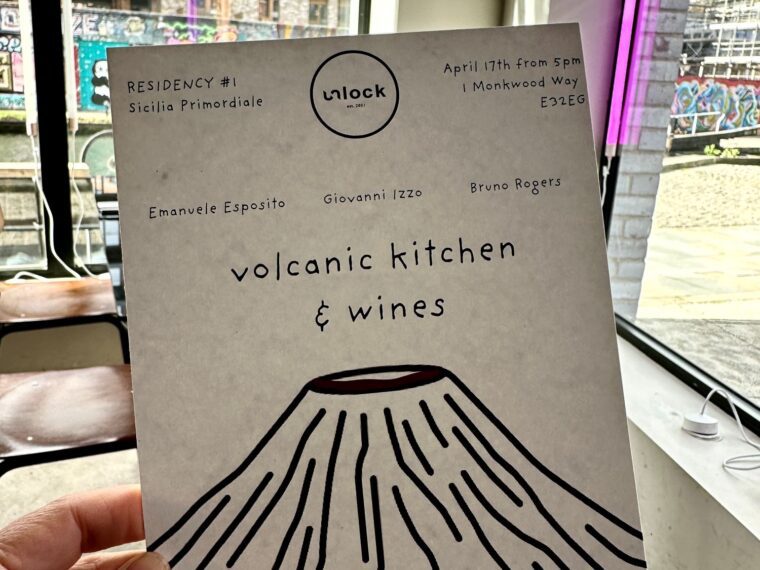 RESIDENCY #1
Sicilia Primordiale
unlock
April 17th from 5pm
1 Monkwood Way
E32EG
Emanuele Esposito
Giovanni Izzo
Bruno Rogers
volcanic kitchen
& wines